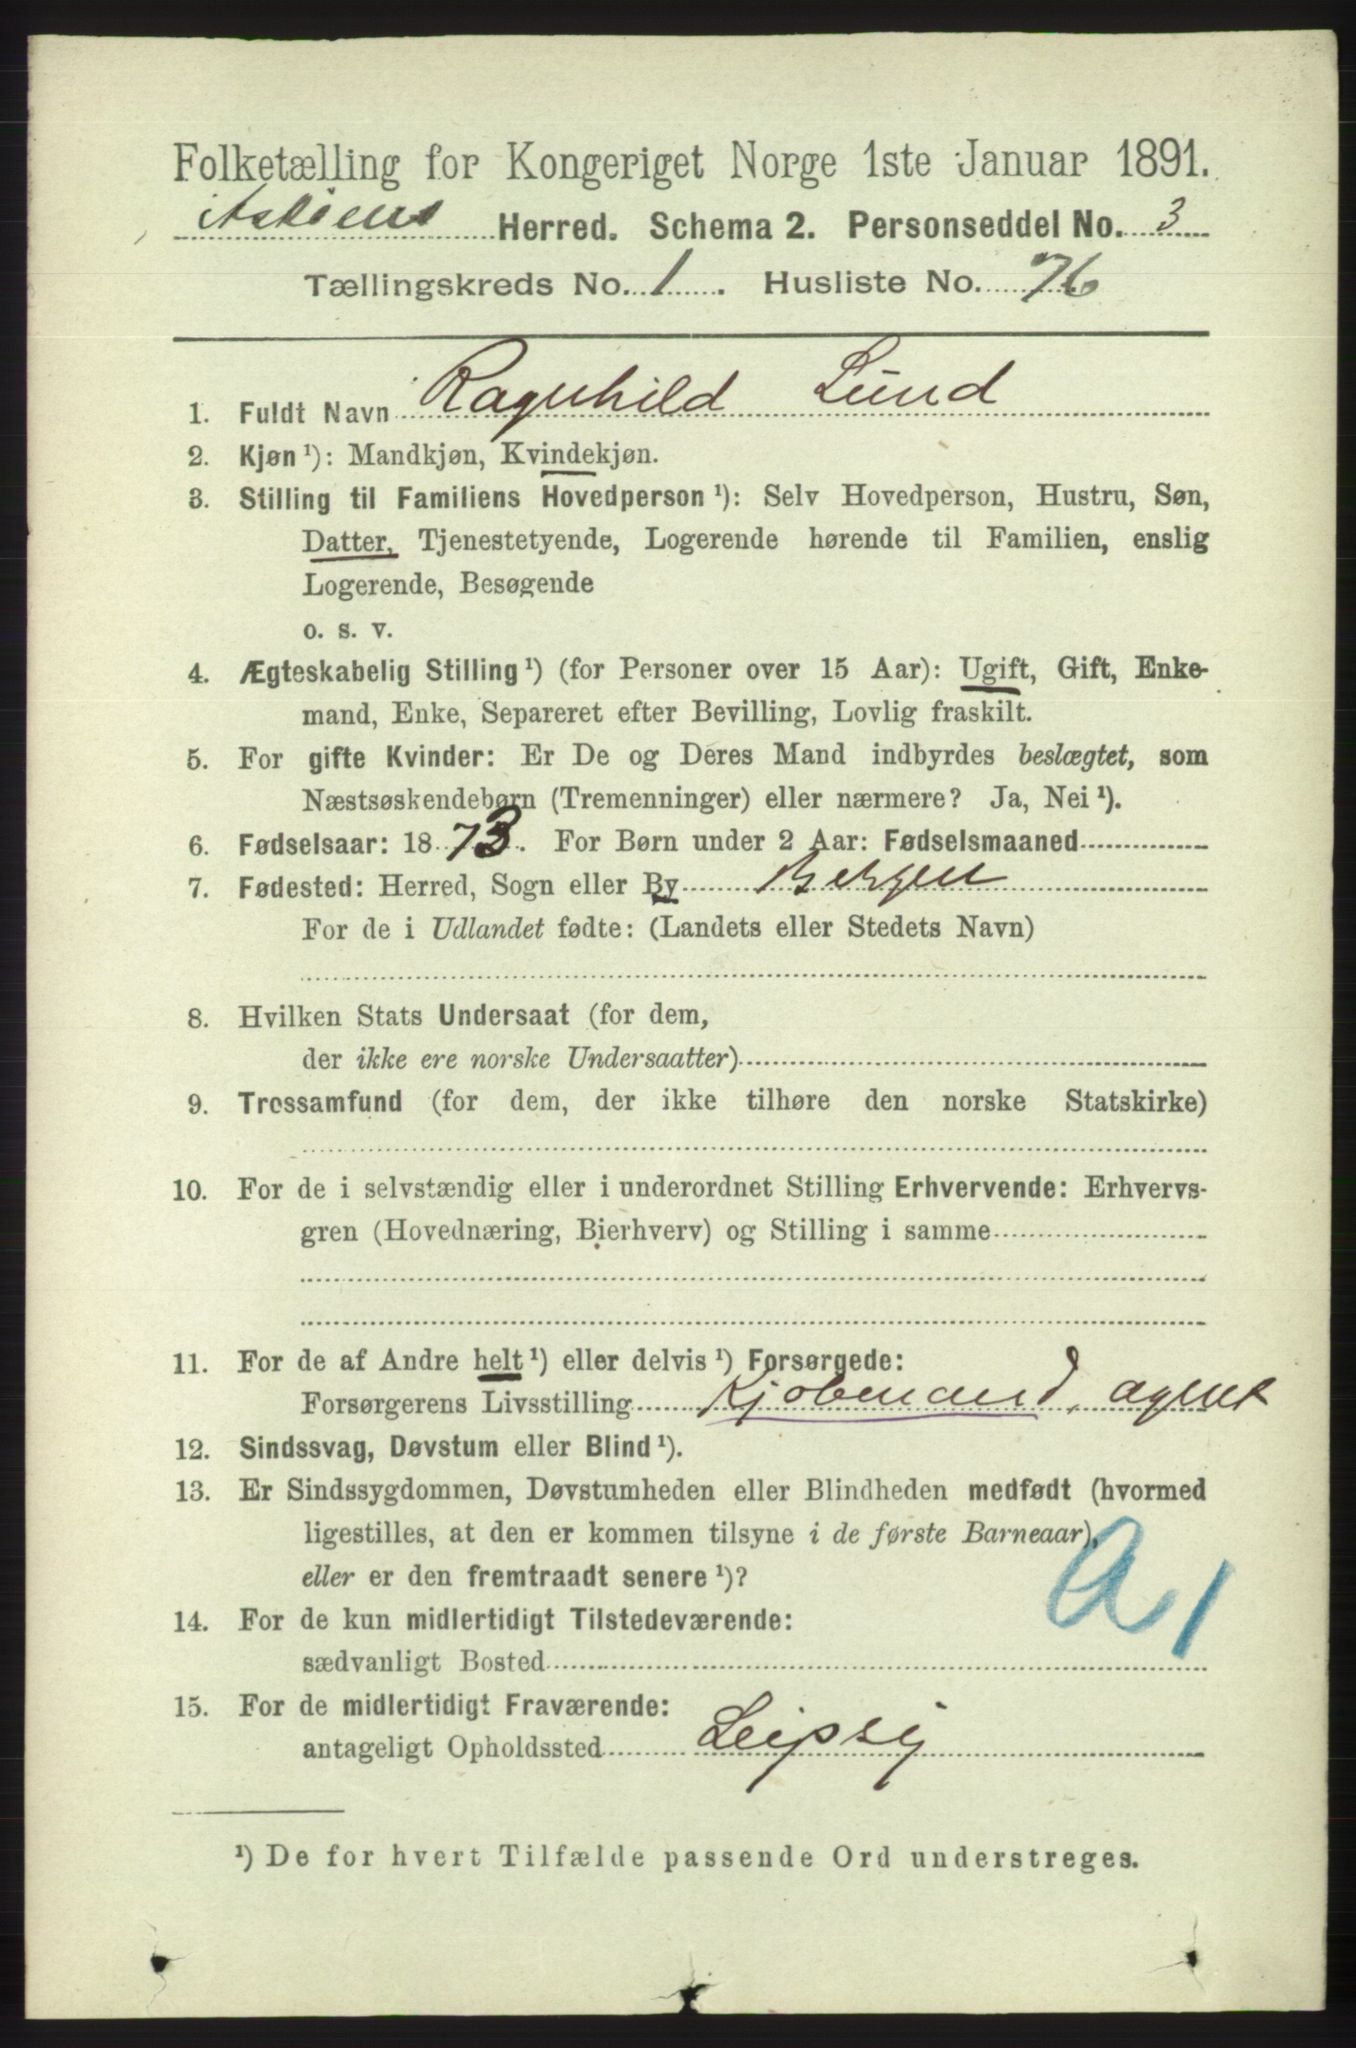 Folketælling for Kongeriget Norge 1ste Januar 1891.
Askøens Herred. Schema 2. Personseddel No. 3
Tællingskreds No. 1. Husliste No. 76
1. Fuldt Navn Ragnhild Lund
2. Kjøn ¹): Mandkjøn, Kvindekjøn.
3. Stilling til Familiens Hovedperson ¹): Selv Hovedperson, Hustru, Søn,
Datter, Tjenestetyende, Logerende hørende til Familien, enslig
Logerende, Besøgende
o. s. v.
4. Ægteskabelig Stilling ¹) (for Personer over 15 Aar): Ugift, Gift, Enke-
mand, Enke, Separeret efter Bevilling, Lovlig fraskilt.
5. For gifte Kvinder: Er De og Deres Mand indbyrdes beslægtet, som
Næstsøskendebørn (Tremenninger) eller nærmere? Ja, Nei ¹).
6. Fødselsaar: 1873. For Børn under 2 Aar: Fødselsmaaned
7. Fødested: Herred, Sogn eller By Bergen
For de i Udlandet fødte: (Landets eller Stedets Navn)
8. Hvilken Stats Undersaat (for dem,
der ikke ere norske Undersaatter)
9. Trossamfund (for dem, der ikke tilhøre den norske Statskirke)
10. For de i selvstændig eller i underordnet Stilling Erhvervende: Erhvervs-
gren (Hovednæring, Bierhverv) og Stilling i samme
11. For de af Andre helt ¹) eller delvis ¹) Forsørgede:
Forsørgerens Livsstilling Kjøbmand, agent
12. Sindssvag, Døvstum eller Blind ¹).
13. Er Sindssygdommen, Døvstumheden eller Blindheden medfødt (hvormed
ligestilles, at den er kommen tilsyne i de første Barneaar),
eller er den fremtraadt senere ¹)?
A 1
14. For de kun midlertidigt Tilstedeværende:
sædvanligt Bosted
15. For de midlertidigt Fraværende:
antageligt Opholdssted Leipsig
¹) De for hvert Tilfælde passende Ord understreges.